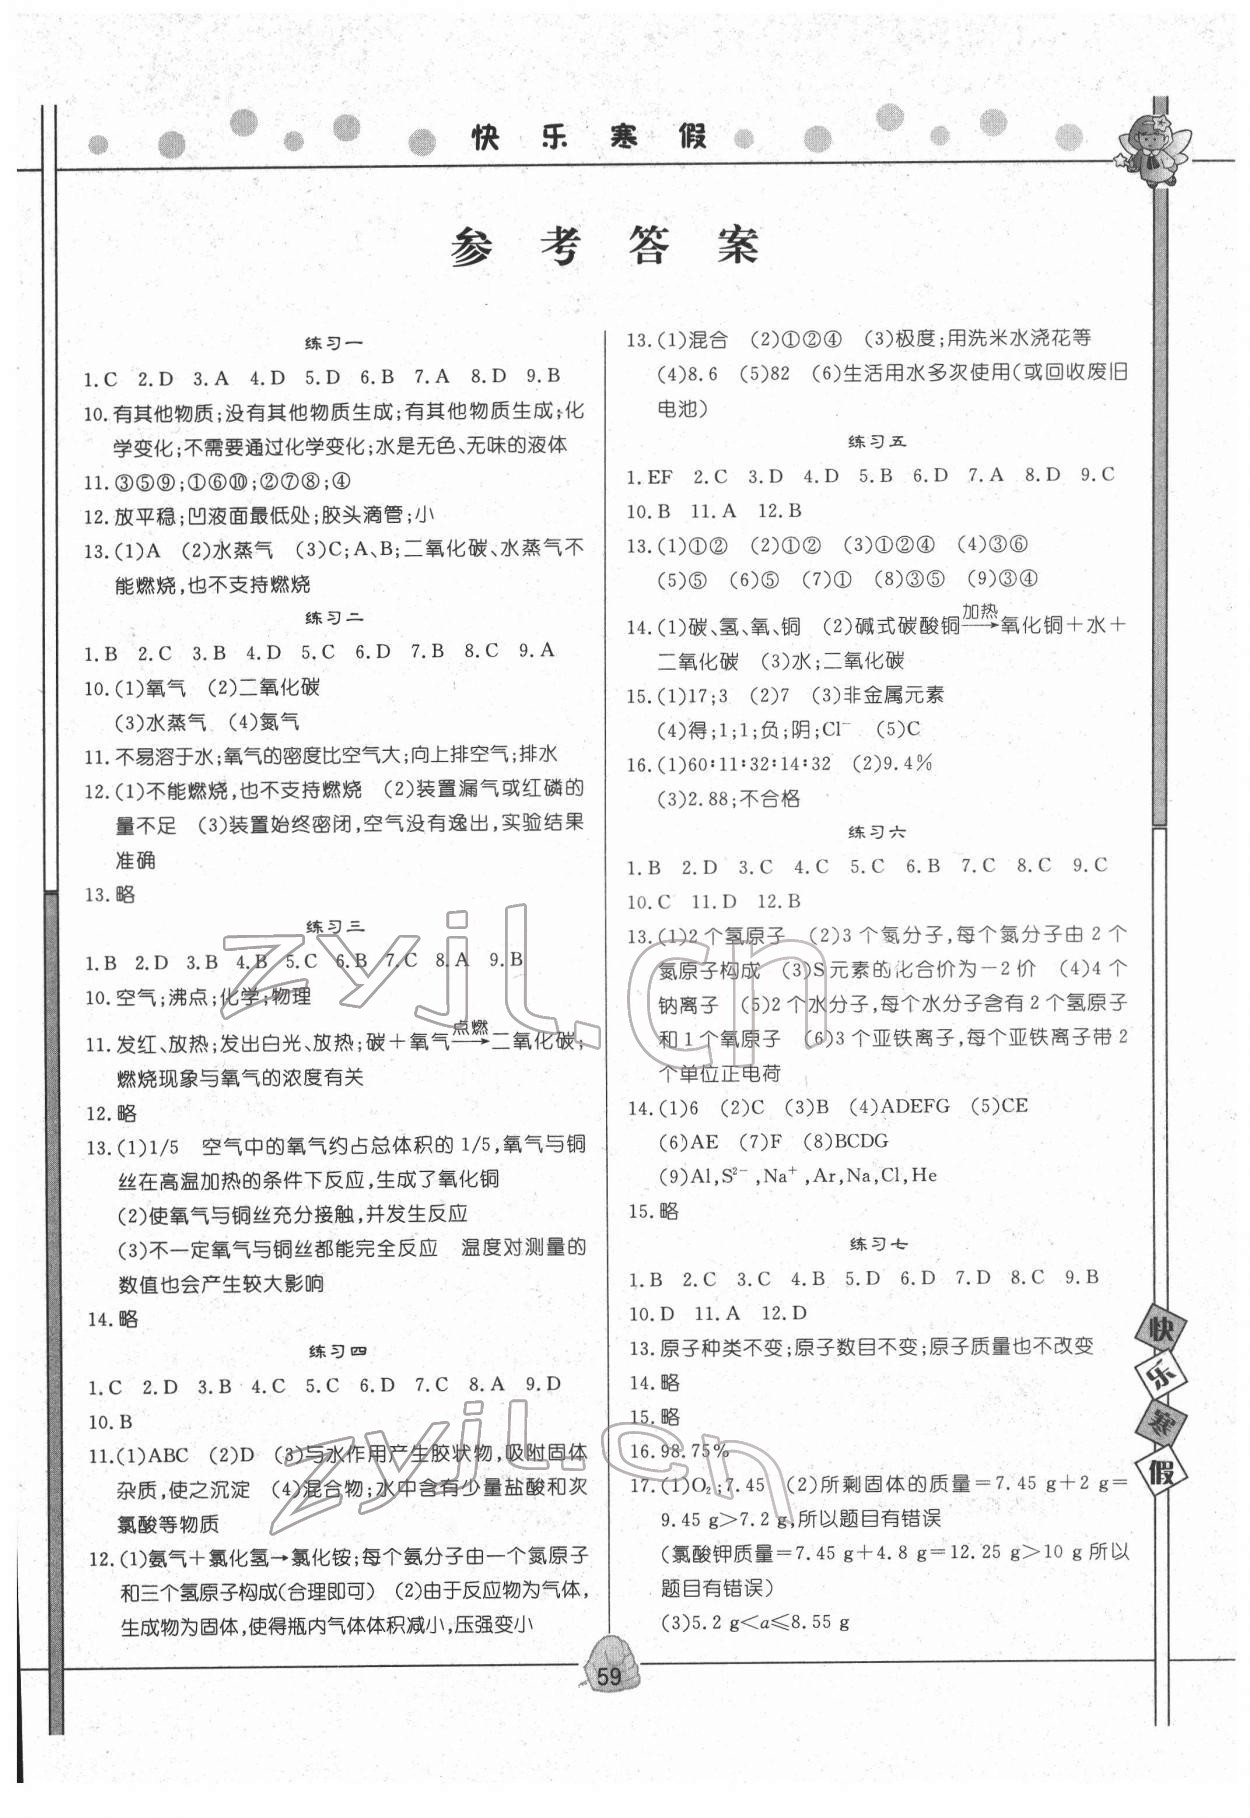 快乐寒假
参考答案
练习一
1.C 2.D 3.A 4.D 5.D 6.B 7.A 8.D 9.B
10.有其他物质;没有其他物质生成;有其他物质生成;化
学变化;不需要通过化学变化;水是无色、无味的液体
11.③⑤⑨;①⑥⑩;②⑦⑧;④
12.放平稳;凹液面最低处;胶头滴管;小
13.(1)A (2)水蒸气 (3)C;A、B;二氧化碳、水蒸气不
能燃烧,也不支持燃烧
练习二
1.B 2.C 3.B 4.D 5.C 6.D 7.B 8.C 9.A
10.(1)氧气 (2)二氧化碳
(3)水蒸气 (4)氮气
11.不易溶于水;氧气的密度比空气大;向上排空气;排水
12.(1)不能燃烧,也不支持燃烧 (2)装置漏气或红磷的
量不足 (3)装置始终密闭,空气没有逸出,实验结果
准确
13.略
练习三
1.B 2.D 3.B 4.B 5.C 6.B 7.C 8.A 9.B
10.空气;沸点;化学;物理
11.发红、放热;发出白光、放热;碳+氧气 点燃→ 二氧化碳;
燃烧现象与氧气的浓度有关
12.略
13.(1)1/5 空气中的氧气约占总体积的 1/5,氧气与铜
丝在高温加热的条件下反应,生成了氧化铜
(2)使氧气与铜丝充分接触,并发生反应
(3)不一定氧气与铜丝都能完全反应 温度对测量的
数值也会产生较大影响
14.略
练习四
1.C 2.D 3.B 4.C 5.C 6.D 7.C 8.A 9.D
10.B
11.(1)ABC (2)D (3)与水作用产生胶状物,吸附固体
杂质,使之沉淀 (4)混合物;水中含有少量盐酸和次
氯酸等物质
12.(1)氨气+氯化氢→氯化铵;每个氨分子由一个氮原子
和三个氢原子构成(合理即可) (2)由于反应物为气体,
生成物为固体,使得瓶内气体体积减小,压强变小
13.(1)混合 (2)①②④ (3)极度;用洗米水浇花等
(4)8.6 (5)82 (6)生活用水多次使用(或回收废旧
电池)
练习五
1.EF 2.C 3.D 4.D 5.B 6.D 7.A 8.D 9.C
10.B 11.A 12.B
13.(1)①② (2)①② (3)①②④ (4)③⑥
(5)⑤ (6)⑤ (7)① (8)③⑤ (9)③④
14.(1)碳、氢、氧、铜 (2)碱式碳酸铜 加热→ 氧化铜+水+
二氧化碳 (3)水;二氧化碳
15.(1)17;3 (2)7 (3)非金属元素
(4)得;1;1;负;阴;Cl⁻ (5)C
16.(1)60∶11∶32∶14∶32 (2)9.4%
(3)2.88;不合格
练习六
1.B 2.D 3.C 4.C 5.C 6.B 7.C 8.C 9.C
10.C 11.D 12.B
13.(1)2 个氢原子 (2)3 个氮分子,每个氮分子由 2 个
氮原子构成 (3)S 元素的化合价为-2 价 (4)4 个
钠离子 (5)2 个水分子,每个水分子含有 2 个氢原子
和 1 个氧原子 (6)3 个亚铁离子,每个亚铁离子带 2
个单位正电荷
14.(1)6 (2)C (3)B (4)ADEFG (5)CE
(6)AE (7)F (8)BCDG
(9)Al,S²⁻,Na⁺,Ar,Na,Cl,He
15.略
练习七
1.B 2.C 3.C 4.B 5.D 6.D 7.D 8.C 9.B
10.D 11.A 12.D
13.原子种类不变;原子数目不变;原子质量也不改变
14.略
15.略
16.98.75%
17.(1)O₂;7.45 (2)所剩固体的质量=7.45 g+2 g=
9.45 g>7.2 g,所以题目有错误
(氯酸钾质量=7.45 g+4.8 g=12.25 g>10 g 所以
题目有错误)
(3)5.2 g<a≤8.55 g
快乐寒假
59
zyjl.cn
zyjl.cn